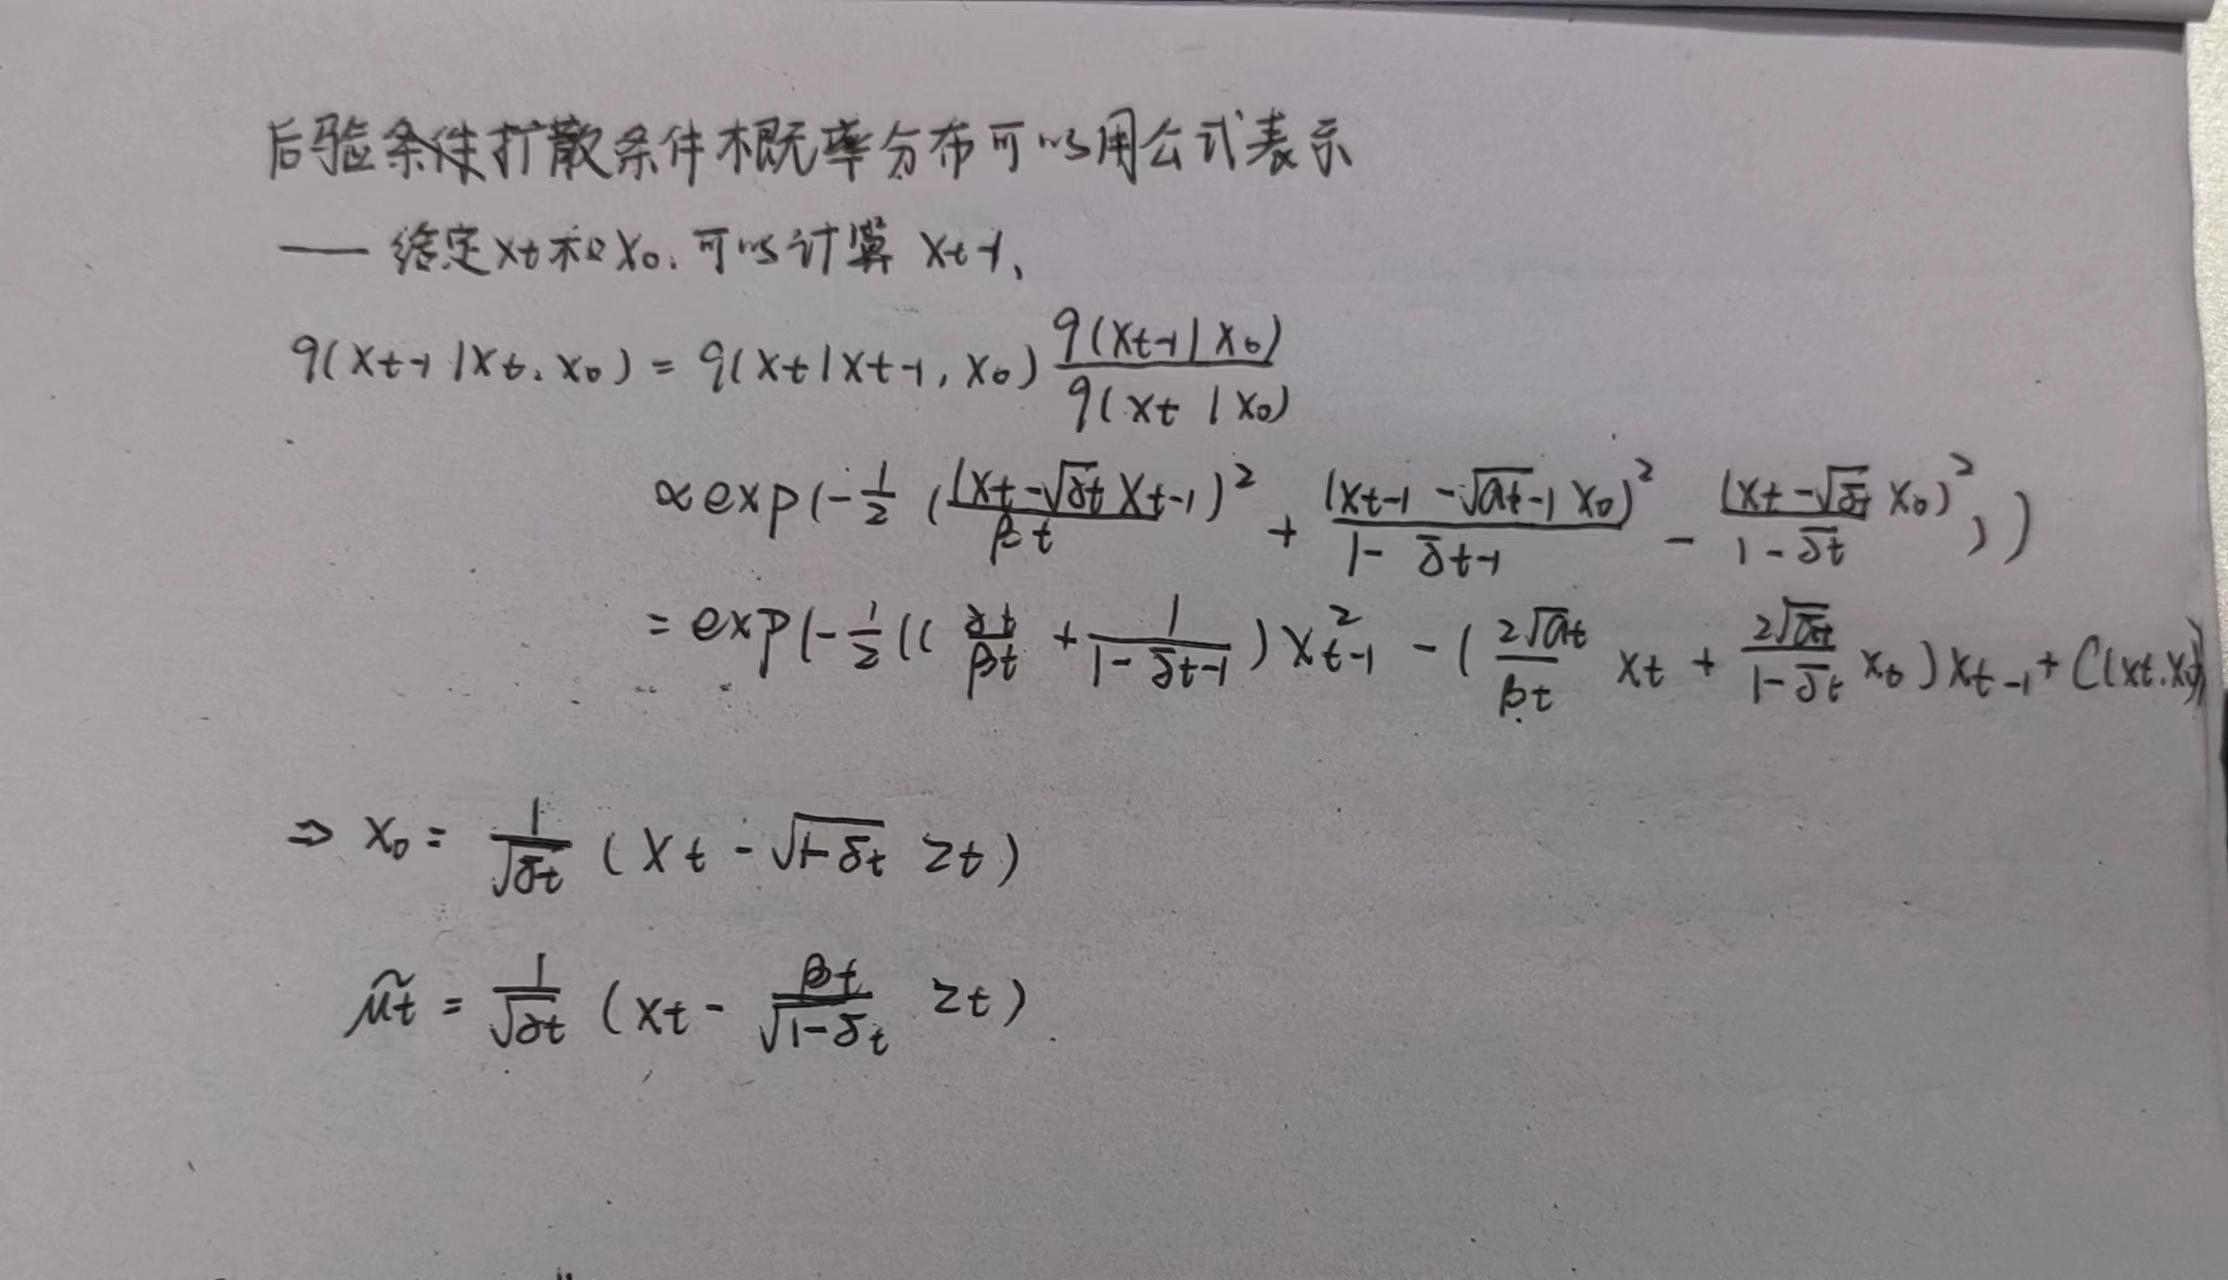 后验条件扩散条件概率分布可以用公式表示
—— 给定xt和x₀,可以计算 xt-1,
q(xt-1|xt,x₀) = q(xt|xt-1,x₀) q(xt-1|x₀) / q(xt|x₀)
∝ exp(-1/2 ((xt-√αt xt-1)²/βt + (xt-1-√ᾱt-1 x₀)²/(1-ᾱt-1) - (xt-√ᾱt x₀)²/(1-ᾱt)))
= exp(-1/2 ((αt/βt + 1/(1-ᾱt-1)) x²t-1 - (2√αt/βt xt + 2√ᾱt/(1-ᾱt) x₀) xt-1 + C(xt,x₀)
⇒ x₀ = 1/√ᾱt (xt - √1-ᾱt zt)
μ̃t = 1/√αt (xt - βt/√1-ᾱt zt)